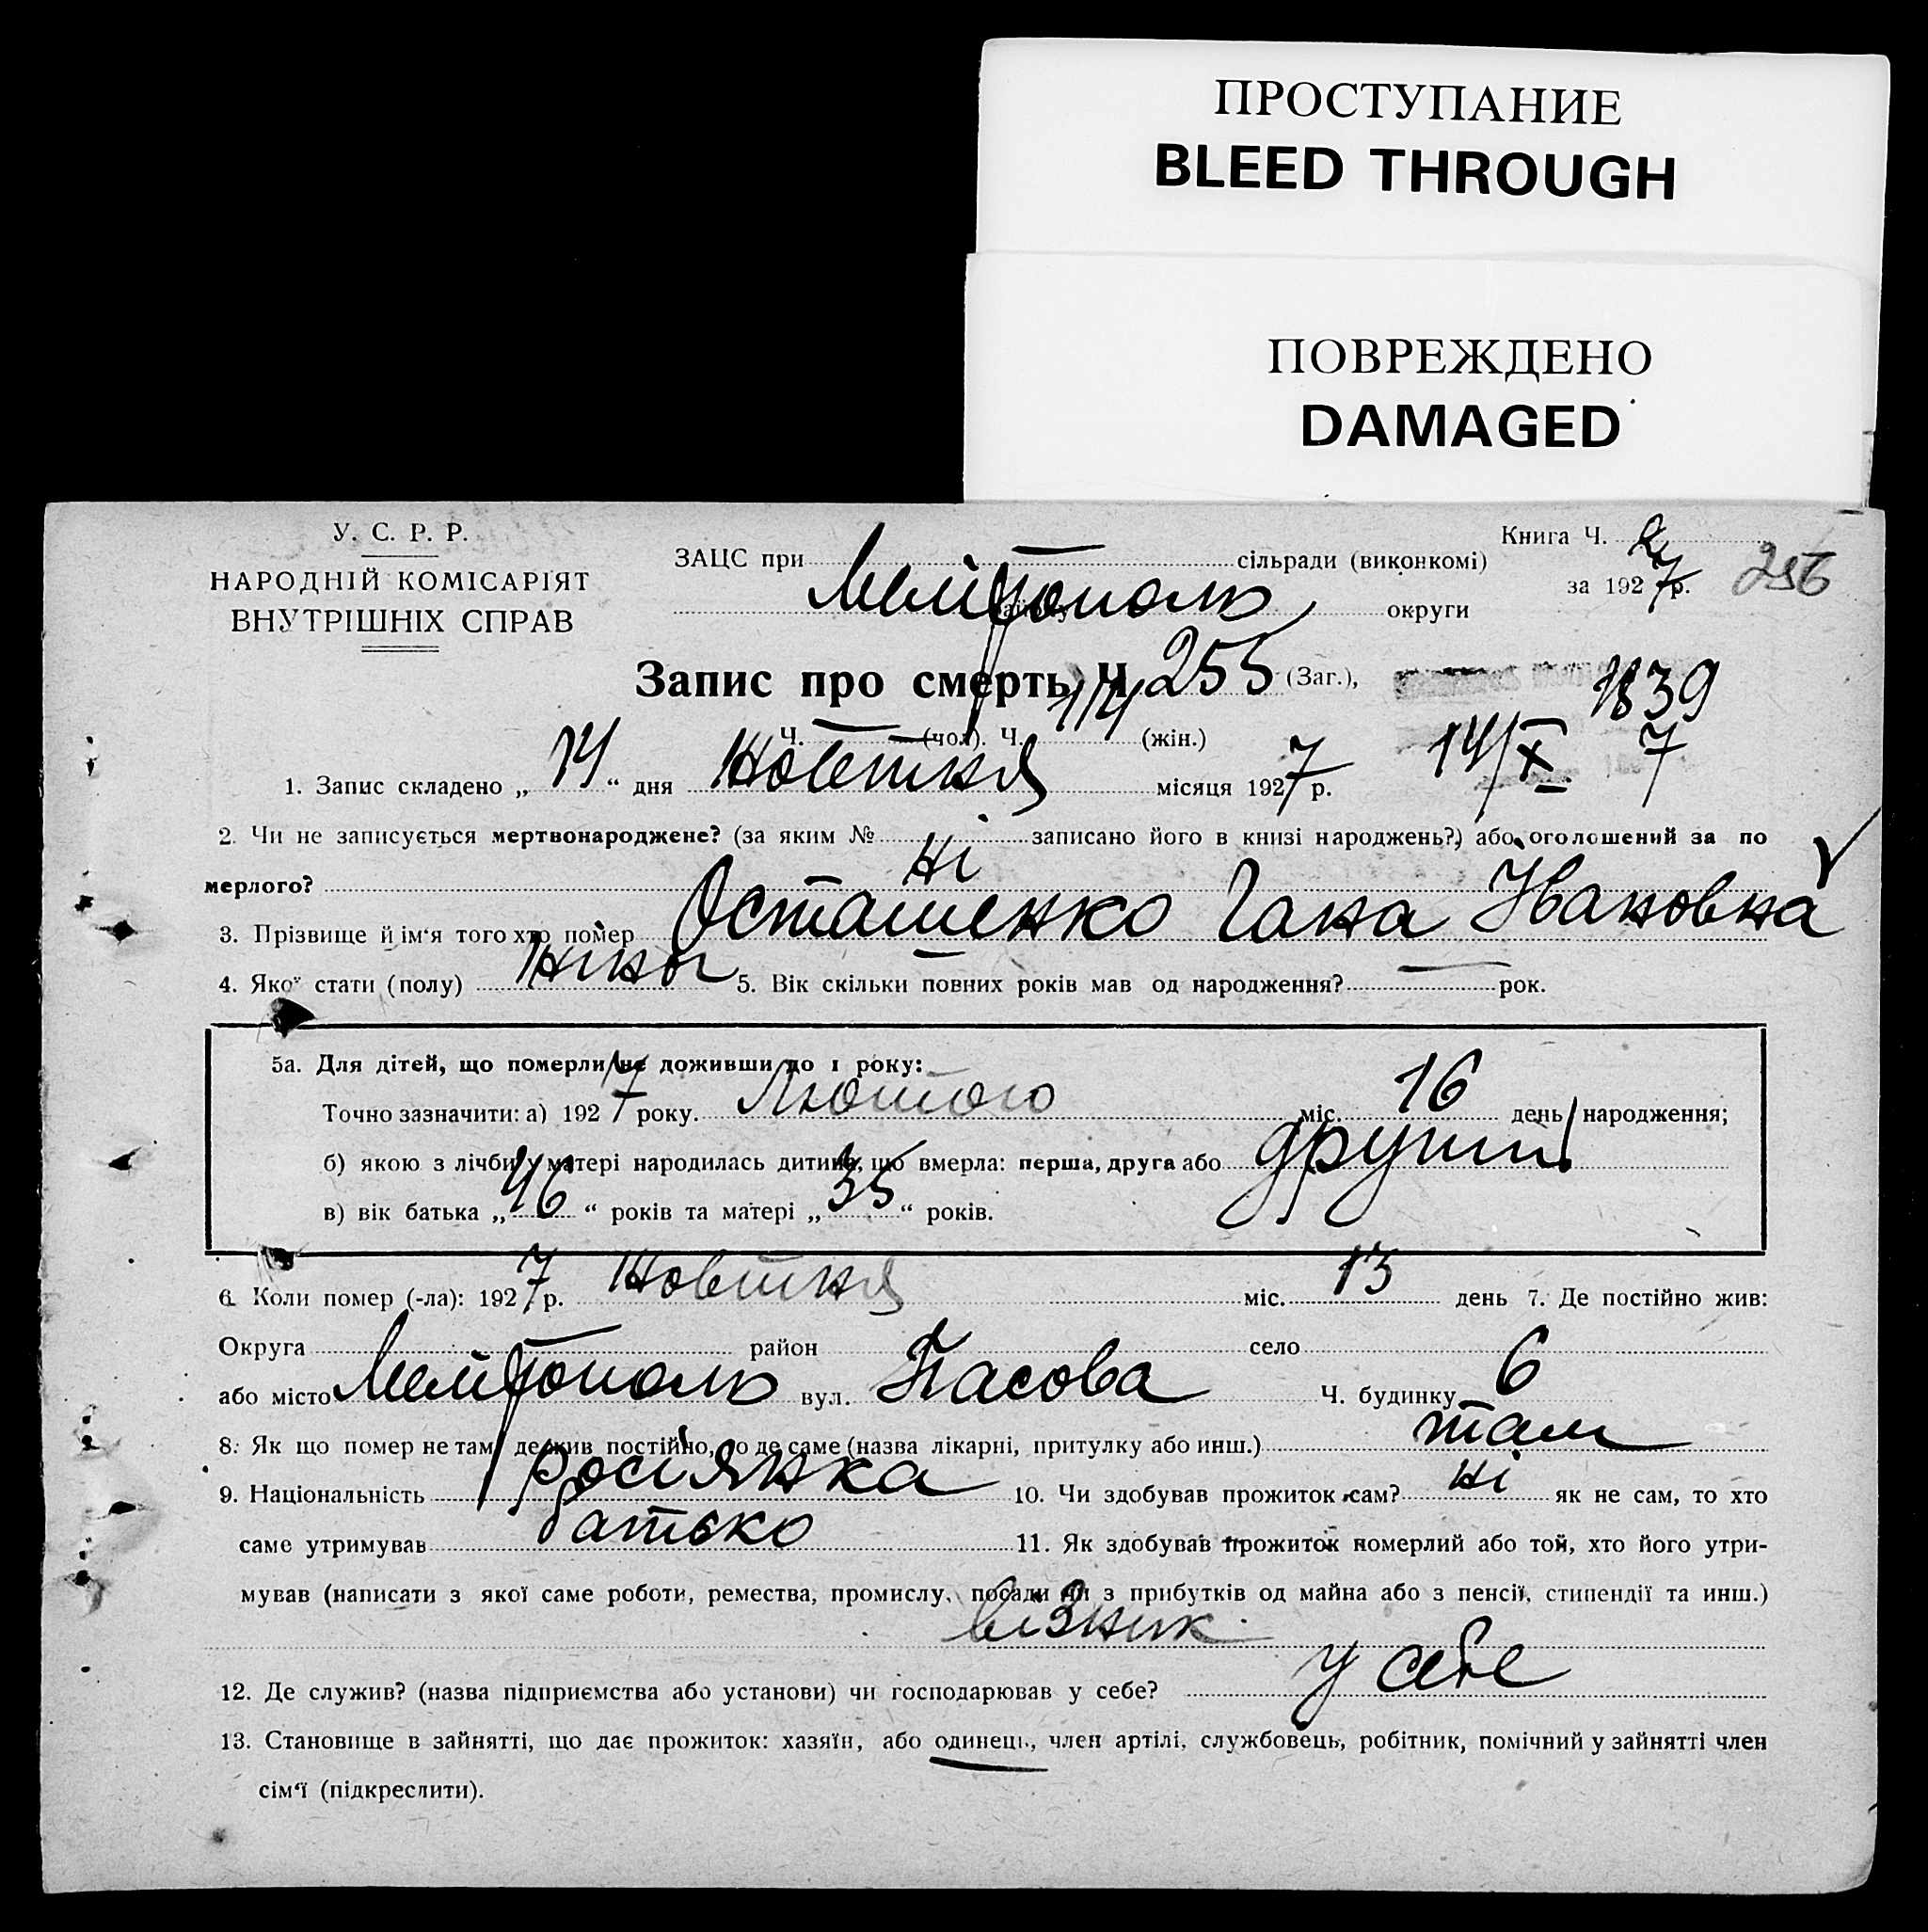 ПРОСТУПАНИЕ
BLEED THROUGH
ПОВРЕЖДЕНО
DAMAGED
У. С. Р. Р.
НАРОДНІЙ КОМІСАРІЯТ
ВНУТРІШНІХ СПРАВ
ЗАЦС при сільради (виконкомі)
Мелітополь округи
Книга Ч. 2
за 1927 р. 256
Запис про смерть Ч 255 (Заг.),
Ч. — (чол). Ч. 114 (жін.)
1839
14/X 7
1. Запис складено „ 14 “ дня Жовтня місяця 1927 р.
2. Чи не записується мертвонароджене? (за яким № записано його в книзі народжень?) або оголошений за по
мерлого? Ні
3. Прізвище й ім'я того хто помер Осташенко Гана Ивановна
4. Якої стати (полу) жіноч 5. Вік скільки повних років мав од народження? — рок.
5а. Для дітей, що померли не доживши до 1 року:
Точно зазначити: а) 1927 року. Лютого міс. 16 день народження;
б) якою з лічби у матері народилась дитина, що вмерла: перша, друга або
в) вік батька „ 46 “ років та матері „ 35 “ років.
6. Коли помер (-ла): 1927 р. Жовтня міс. 13 день 7. Де постійно жив:
Округа район село
або місто Мелітополь вул. Ч. будинку 6
8. Як що помер не там, де жив постійно, то де саме (назва лікарні, притулку або инш.) там
9. Національність росіянка 10. Чи здобував прожиток сам? ні як не сам, то хто
саме утримував батько 11. Як здобував прожиток померлий або той, хто його утри-
мував (написати з якої саме роботи, ремества, промислу, посади чи з прибутків од майна або з пенсії, стипендії та инш.)
візник
12. Де служив? (назва підприємства або установи) чи господарював у себе? у себе
13. Становище в зайнятті, що дає прожиток: хазяїн, або одинець, член артілі, службовець, робітник, помічний у зайнятті член
сім'ї (підкреслити).